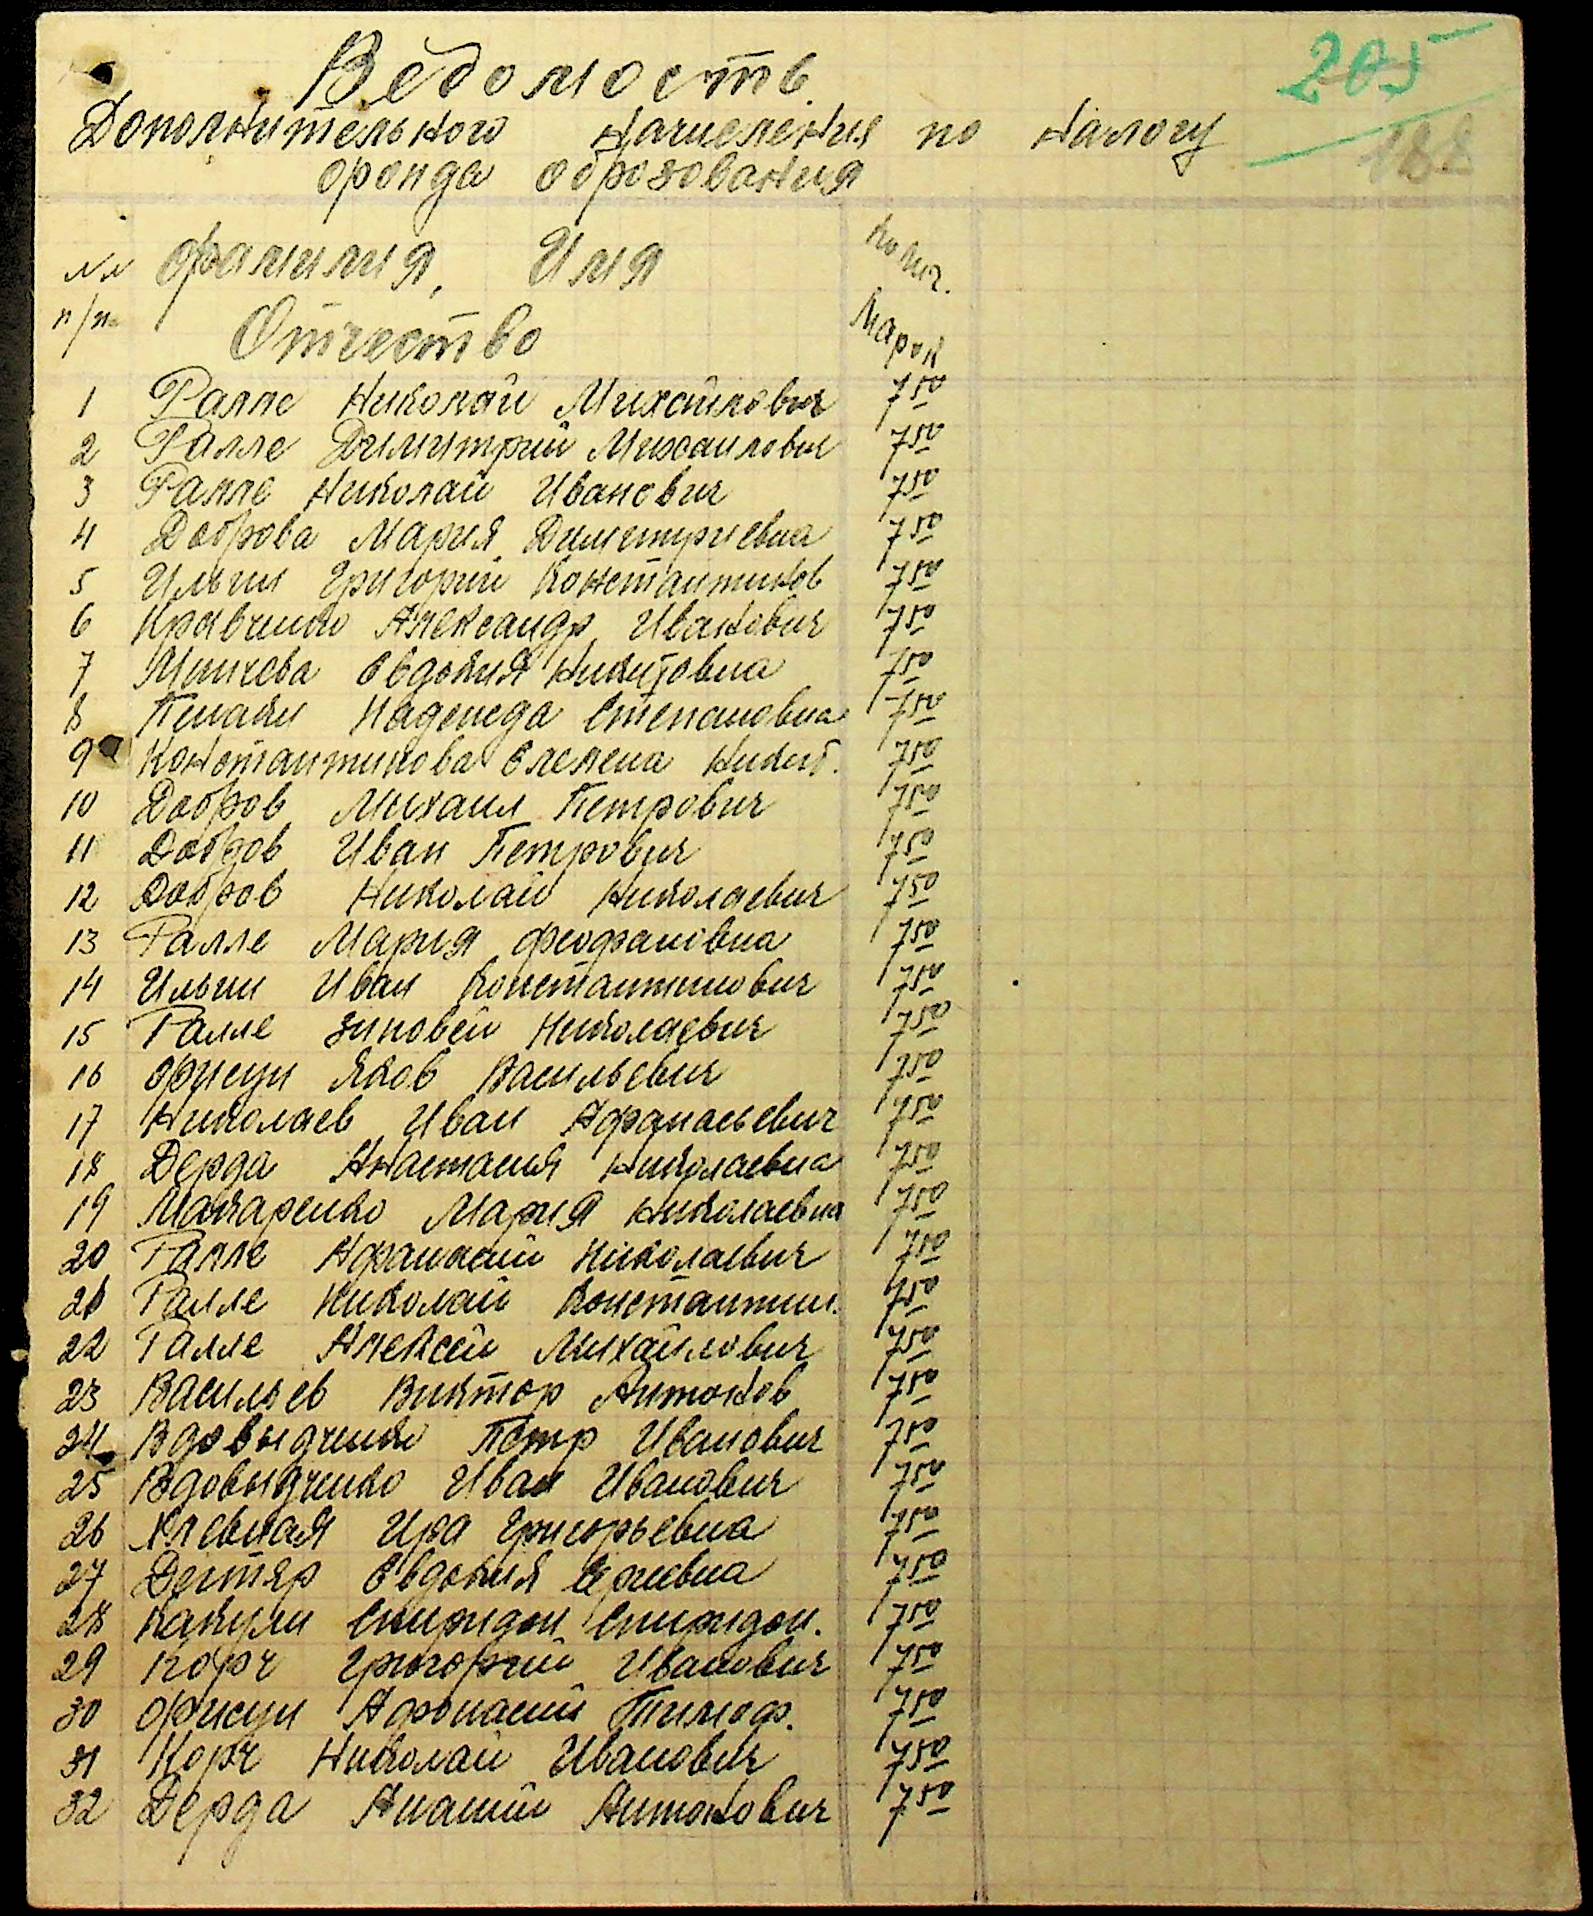 Ведомость
205
Дополнительного начисления по налогу
188
фонда образования
№№ фамилия, Имя Колич.
п/п. Отчество Марок
1 Ралле Николай Михайлович 7 50
2 Ралле Димитрий Михаилович 7 50
3 Ралле Николай Иванович 7 50
4 Доброва Мария Димитриевна 7 50
5 Ильин Григорий Константинов 7 50
6 Кравченко Александр Иванович 7 50
7 Минчева Евдокия Никитовна 7 50
8 Надежда Степановна 7 50
9 Константинова Елена Никит. 7 50
10 Добров Михаил Петрович 7 50
11 Добров Иван Петрович 7 50
12 Добров Николай Николаевич 7 50
13 Галле Мария Феофановна 7 50
14 Ильин Иван Константинович 7 50
15 Галле Зиновей Николаевич 7 50
16 Фисун Яков Васильевич 7 50
17 Николаев Иван Афанасьевич 7 50
18 Дерда Анастасия Николаевна 7 50
19 Макаренко Мария Николаевна 7 50
20 Галле Афанасий Николаевич 7 50
21 Галле Николай Константин. 7 50
22 Галле Алексей Михайлович 7 50
23 Васильев Виктор Антонов 7 50
24 Вдовыдченко Петр Иванович 7 50
25 Вдовыдченко Иван Иванович 7 50
26 Хлевная Ира Григорьевна 7 50
27 Дегтяр Евдокия 7 50
28 Какули Спиридон Спиридон. 7 50
29 Корч Григорий Иванович 7 50
30 Фисун Афонасий Тимоф. 7 50
31 Корч Николай Иванович 7 50
32 Дерда Антонович 7 50